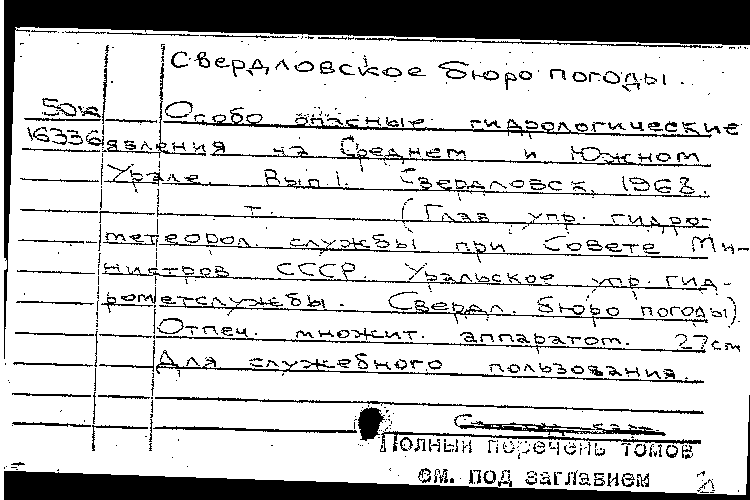 Свердловское бюро погоды.
50к Особо опасные гидрологические
16336 явления на Среднем и Южном
Урале. Вып. 1. Свердловск, 1968.
т. (Глав. упр. гидро-
метеорол. службы при Совете Ми-
нистров СССР. Уральское упр. гид-
рометслужбы. Свердл. бюро погоды).
Отпеч. множит. аппаратом. 27см
Для служебного пользования.
Полный перечень томов
см. под заглавием